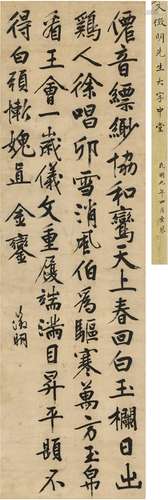 文徵明先生大字中堂
民國九年四月
僊音縹緲協和鸞天上春回白玉欄日出
鷄人徐唱卯雪消風伯為驅寒萬方玉帛
看王會一歲儀文重履端滿目昇平題不
得白頭慚愧直金鑾
徵明